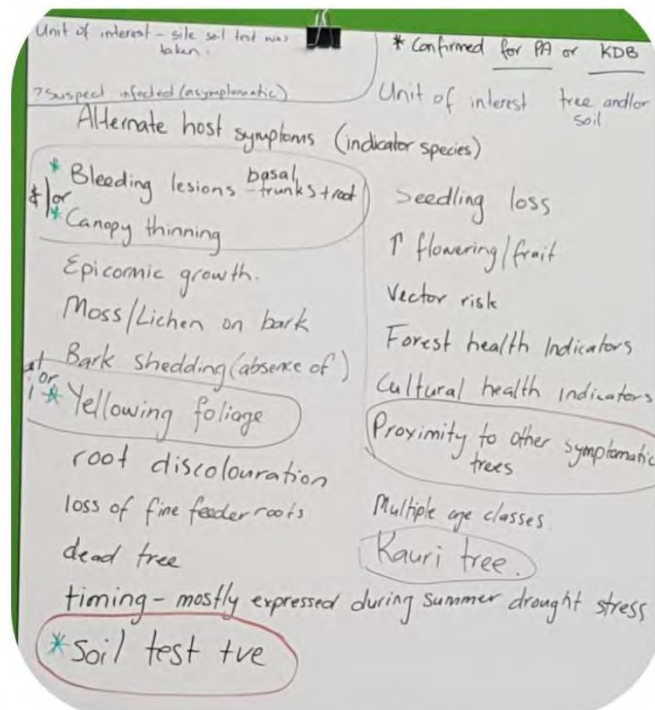 Unit of interest - site soil test was
taken.
? Suspect infected (asymptomatic)
* Confirmed for PA or KDB
Unit of interest tree and/or
soil
Alternate host symptoms (indicator species)
* Bleeding lesions basal
- trunks + root
&/or
* Canopy thinning
Epicormic growth.
Moss/Lichen on bark
Bark shedding (absence of)
or
* Yellowing foliage
root discolouration
loss of fine feeder roots
dead tree
Seedling loss
↑ flowering/fruit
Vector risk
Forest health Indicators
Cultural health Indicators
Proximity to other symptomatic
trees
Multiple age classes
Kauri tree.
timing - mostly expressed during summer drought stress
* Soil test +ve